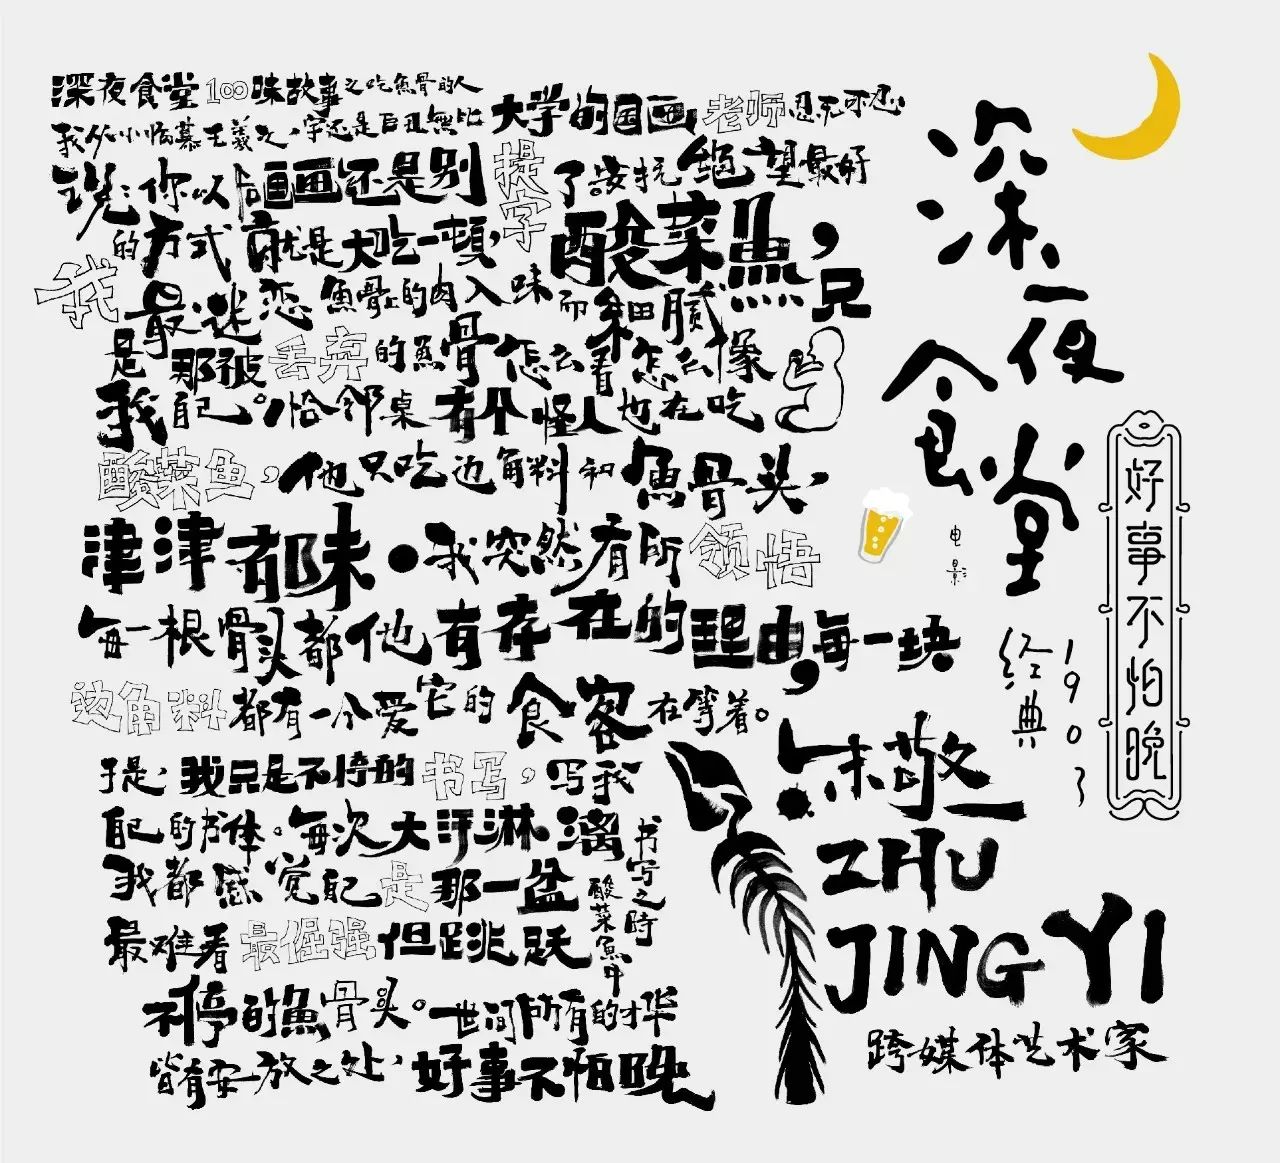 深夜食堂100味故事之吃魚骨的人
我从小临慕王羲之,字还是自丑無比
大学的国画老师忍无可忍
说:你以后画画还是别提字了。抵抗绝望最好
的方式就是大吃一頓酸菜魚,
我最迷恋魚骨上的肉入味而細腻,只
是那被丢弃的魚骨怎么看怎么像
我自己。恰邻桌有个怪人也在吃
酸菜鱼,他只吃边角料和魚骨头,
津津有味。我突然有所领悟
每一根骨头都他有存在的理由,每一块
边角料都有一个爱它的食客在等着。
于是,我只是不停的书写,写我
自己的书体。每次大汗淋漓书写之時
我都感觉自己是那一盆酸菜魚中
最难看最倔强但跳跃
不停的魚骨头。世间所有的才华
皆有安放之处,好事不怕晚
深夜食堂
电影
经典
1903
好事不怕晚
朱敬一
ZHU
JING YI
跨媒体艺术家